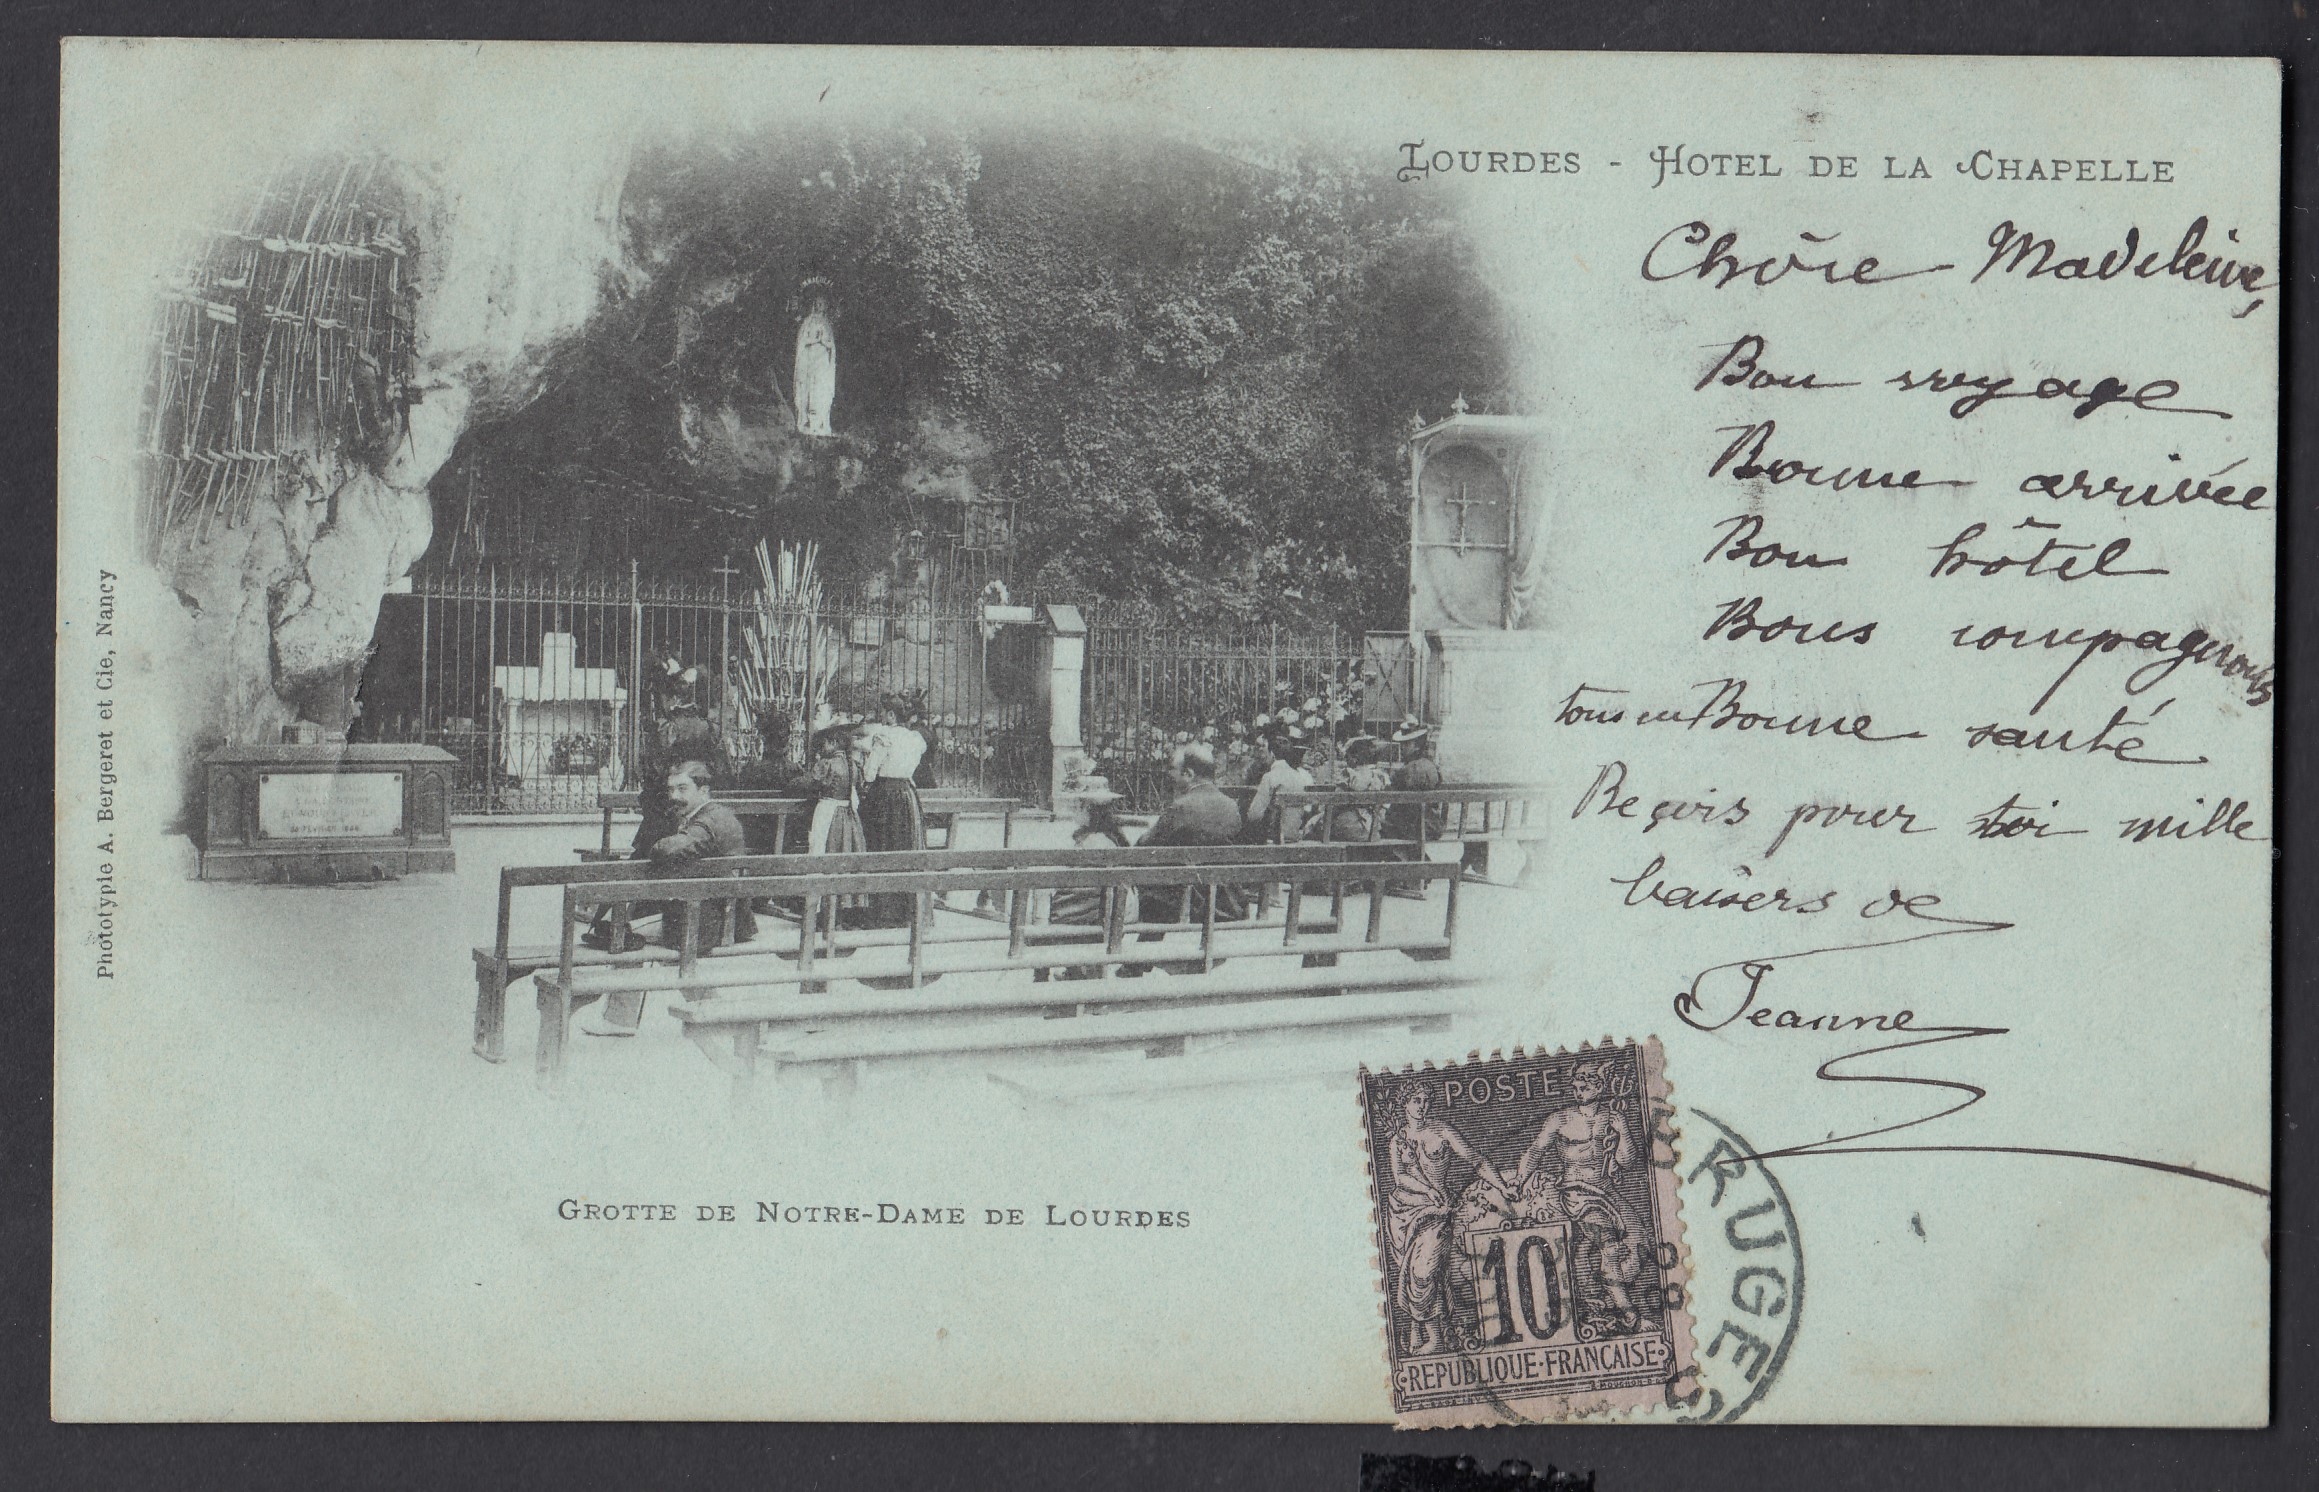 LOURDES - HOTEL DE LA CHAPELLE
Chère Madeleine,
Bon voyage
Bonne arrivée
Bon hôtel
Bons compagnons
tous en Bonne santé
Reçois pour toi mille
baisers de
Jeanne
Phototypie A. Bergeret et Cie, Nancy
GROTTE DE NOTRE-DAME DE LOURDES
POSTE
10
REPUBLIQUE·FRANÇAISE
RUGES